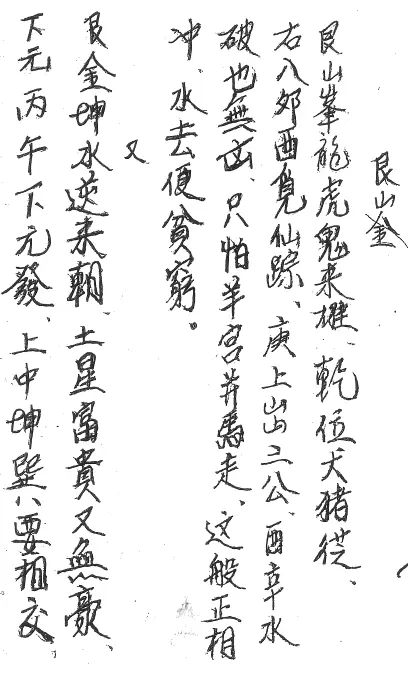 艮山金
艮山峯龍虎鬼来摧、乾位犬猪從、
右八郊酉覓仙踪、庚上山山二公、酉辛水
破也無凶、只怕羊宮并馬走、这般正相
冲、水去便貧窮。
又
艮金坤水逆来朝、土星富貴又無豪、
下元丙午下元發、上中坤巽八要相交